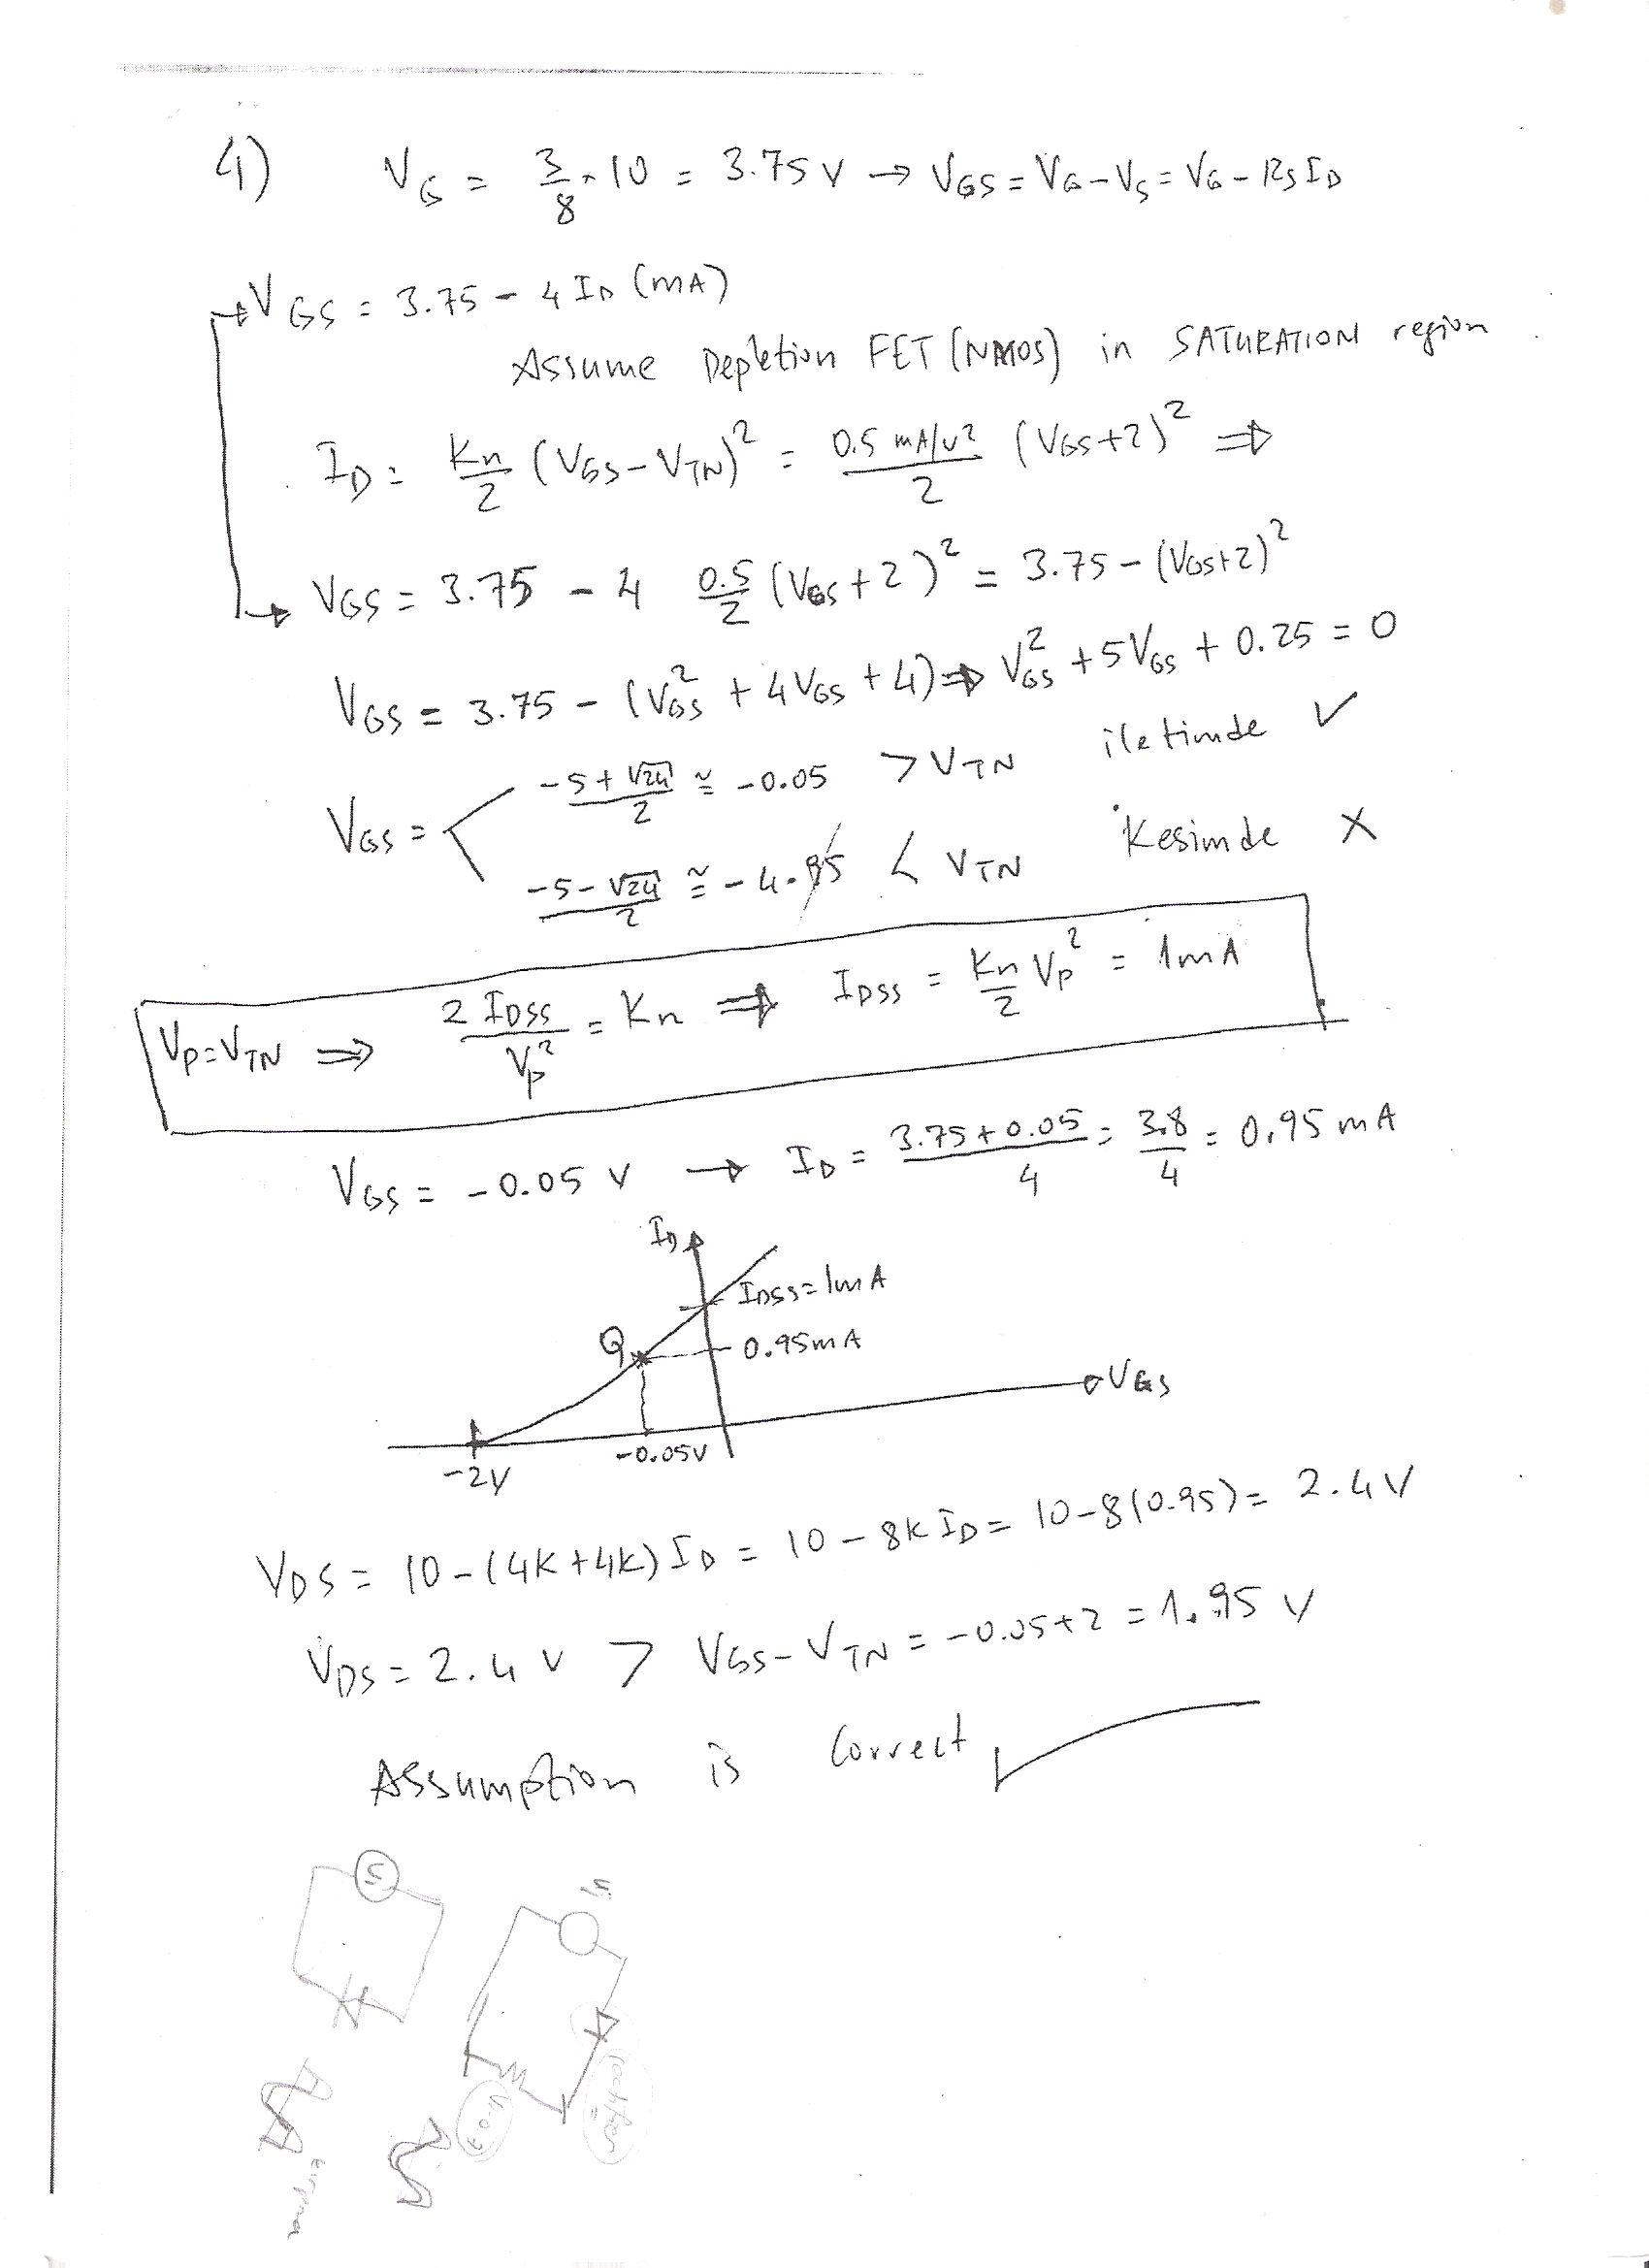 4) VG = 3/8 · 10 = 3.75 V → VGS = VG - VS = VG - RS ID
VGS = 3.75 - 4 ID (mA)
Assume Depletion FET (NMOS) in SATURATION region
ID = Kn/2 (VGS - VTN)² = 0.5 mA/V²/2 (VGS+2)² ⇒
VGS = 3.75 - 4 0.5/2 (VGS+2)² = 3.75 - (VGS+2)²
VGS = 3.75 - (VGS² + 4VGS + 4) ⇒ VGS² + 5VGS + 0.25 = 0
VGS =
-5+√24/2 ≅ -0.05 > VTN iletimde ✓
-5-√24/2 ≅ -4.95 < VTN Kesimde ×
Vp = VTN ⇒ 2 IDSS/Vp² = Kn ⇒ IDSS = Kn/2 Vp² = 1mA
VGS = -0.05 V → ID = 3.75+0.05/4 = 3.8/4 = 0.95 mA
ID
IDSS = 1mA
Q
0.95mA
VGS
-2V
-0.05V
VDS = 10 - (4K+4K) ID = 10 - 8K ID = 10 - 8(0.95) = 2.4 V
VDS = 2.4 V > VGS - VTN = -0.05+2 = 1.95 V
Assumption is Correct ✓
Vi
V-0.7
kırpma